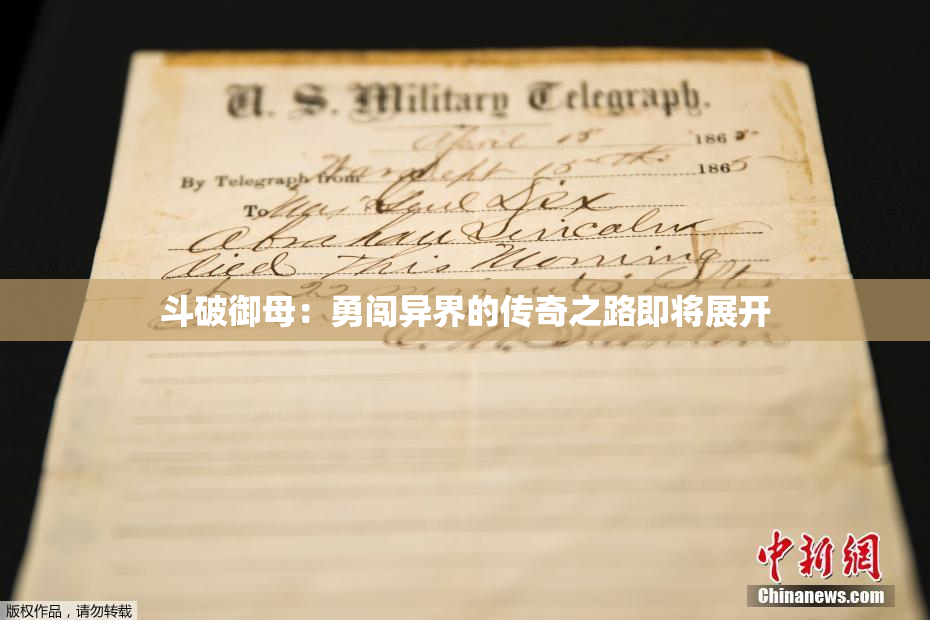 U. S. Military Telegraph.
April 15 1865
By Telegraph from War Dept 15th 1865
To Maj Genl Dix
Abraham Lincoln
died This Morning
at 22 minutes after
斗破御母：勇闯异界的传奇之路即将展开
Stanton
中新网
Chinanews.com
版权作品，请勿转载